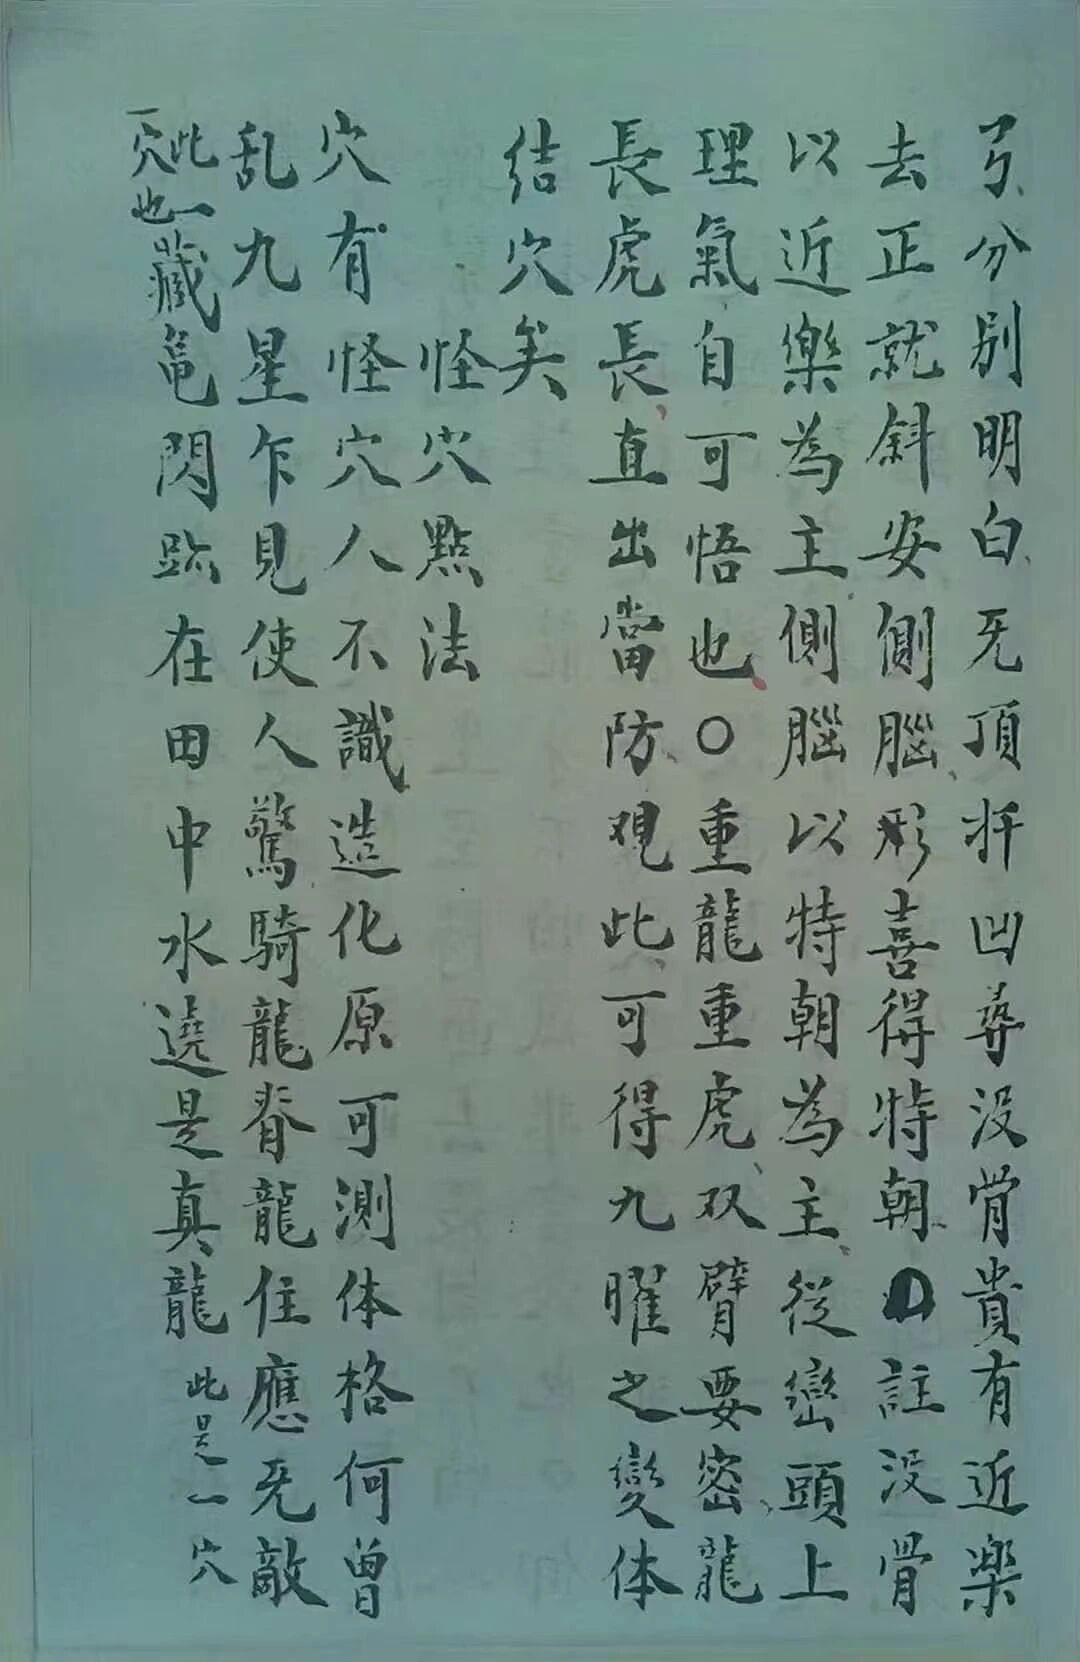 弓分别明白旡頂扦凹尋没骨貴有近樂
去正就斜安側腦形喜得特朝○註没骨
以近樂為主側腦以特朝為主從巒頭上
理氣自可悟也○重龍重虎双臂要密龍
長虎長直出當防观此可得九曜之變体
结穴矣
怪穴點法
穴有怪穴人不識造化原可測体格何曽
乱九星乍見使人驚騎龍脊龍住應旡敵
此一穴也藏亀閃跡在田中水遶是真龍此是一穴